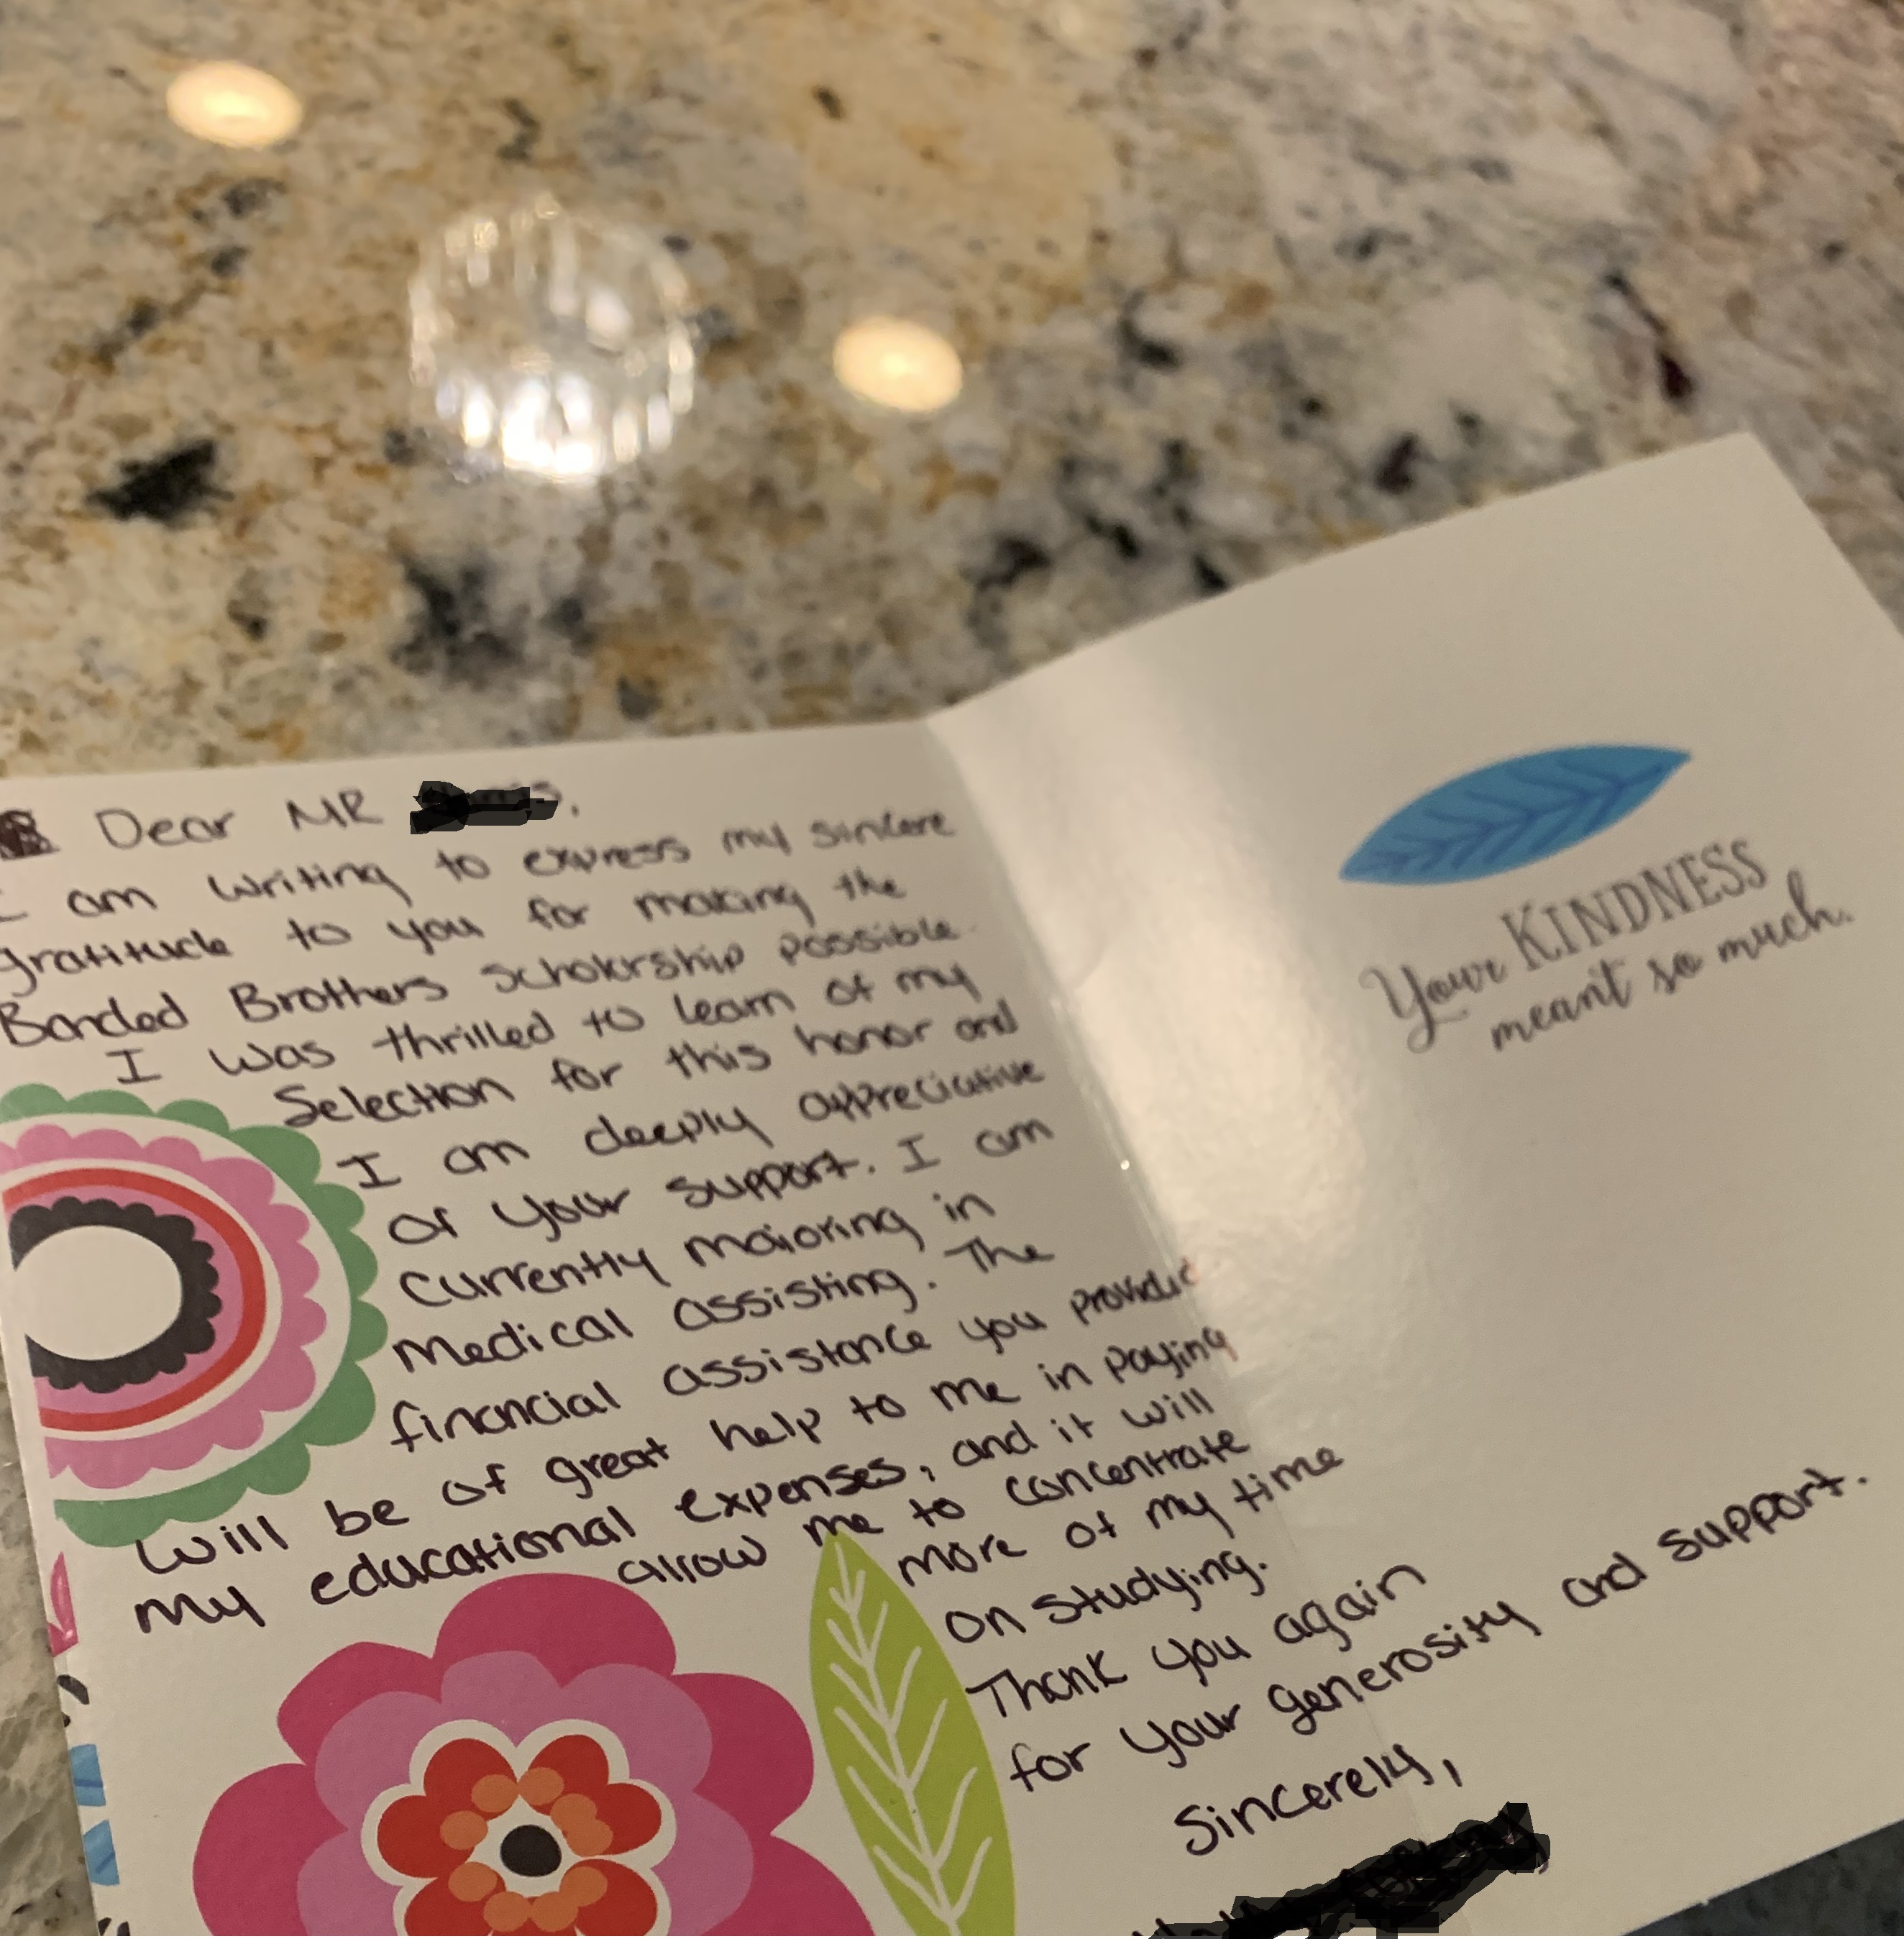 Dear MR
I am writing to express my sincere
gratitude to you for making the
Bonded Brothers scholorship possible.
I was thrilled to learn of my
Selection for this honor and
I am deeply appreciative
of your support. I am
currently majoring in
Medical assisting. The
financial assistance you provide
will be of great help to me in paying
my educational expenses, and it will
allow me to concentrate
more of my time
on studying.
Thank you again
for your generosity and support.
Sincerely,
Your KINDNESS
meant so much.